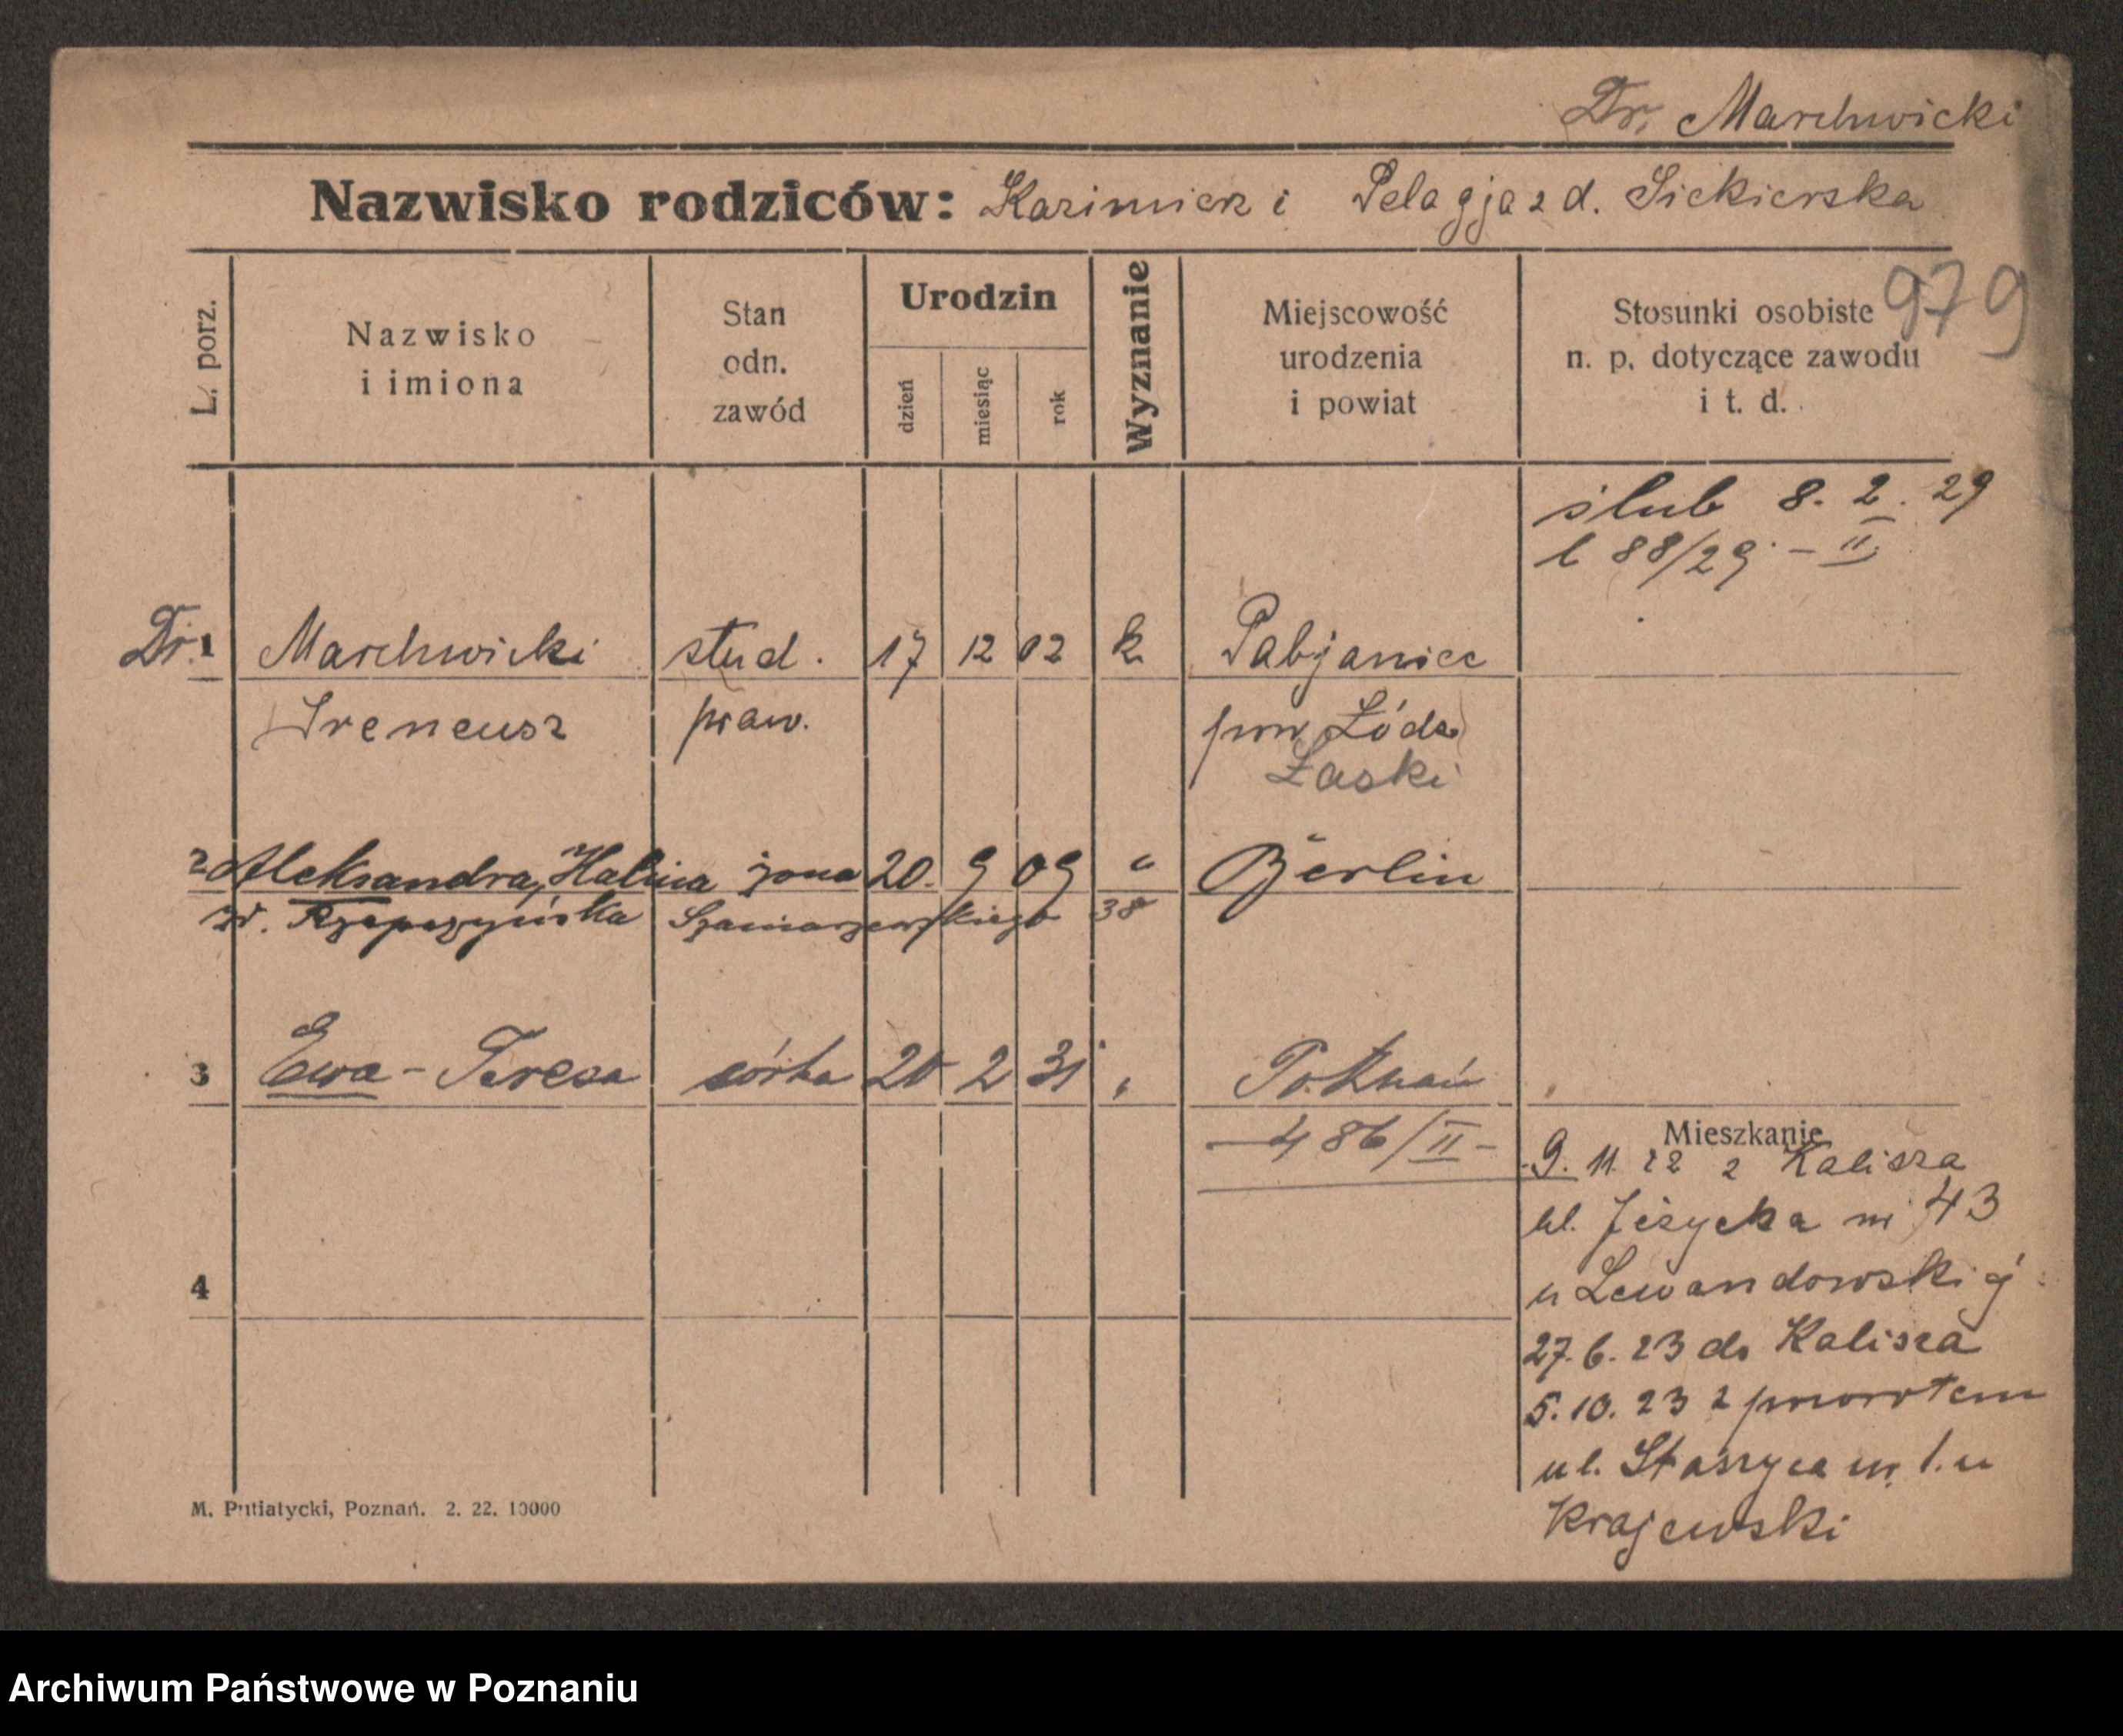 Dr. Marchwicki
Nazwisko rodziców: Kazimierz i Pelagja z d. Siekierska
979
L. porz.
Nazwisko
i imiona
Stan
odn.
zawód
Urodzin
dzień
miesiąc
rok
Wyznanie
Miejscowość
urodzenia
i powiat
Stosunki osobiste
n. p. dotyczące zawodu
i t. d.
ślub 8. 2. 29
l 88/29 - II
Dr. 1 Marchwicki stud. 17 12 02 k Pabjanice
Ireneusz praw. pow Łódz
Łaski
2 Aleksandra, Halina żona 20. 9 09 " Berlin
zd. Rzepczyńska Szamarzewskiego 38
3 Ewa - Teresa córka 20 2 31 " Poznań
486/II -
Mieszkanie
9. 11 22 z Kalisza
ul. Jeżycka nr 43
u Lewandowskiej
4
27. 6. 23 do Kalisza
5. 10. 23 z powrotem
ul. Staszyca nr 1. u
Krajewski
M. Putiatycki, Poznań. 2. 22. 10000
Archiwum Państwowe w Poznaniu